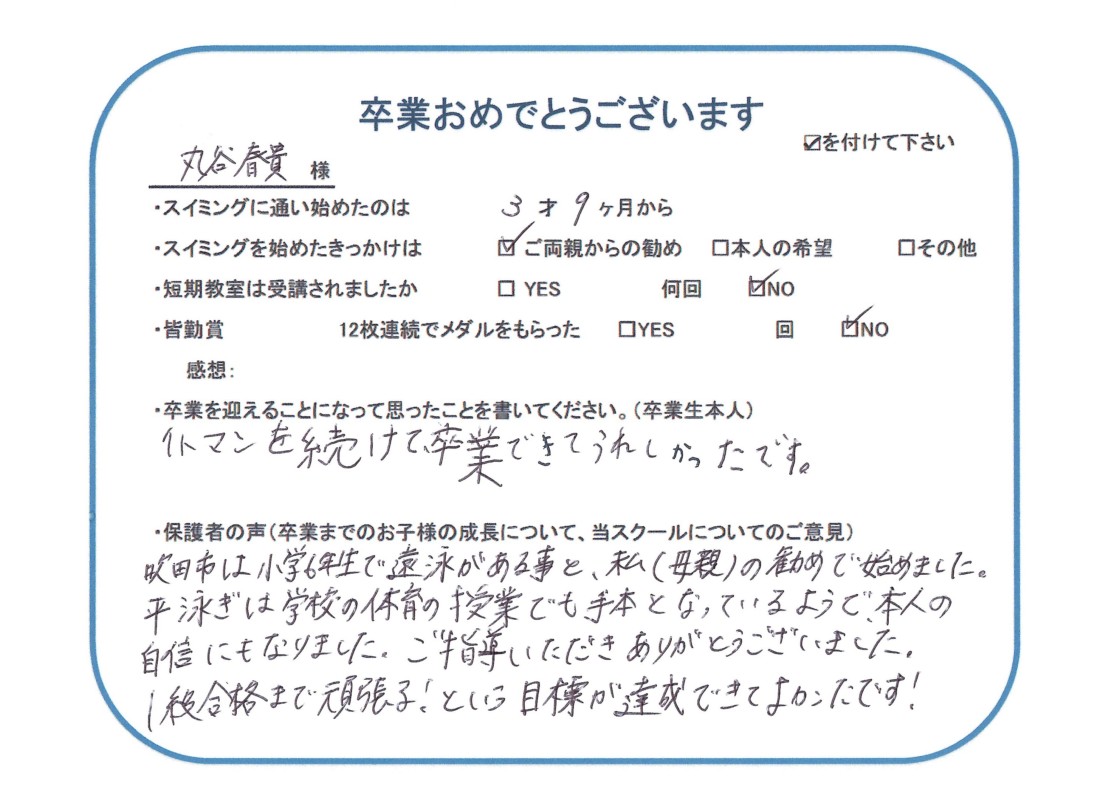 卒業おめでとうございます
☑を付けて下さい
丸谷春貴 様
・スイミングに通い始めたのは 3 才 9 ヶ月から
・スイミングを始めたきっかけは ☑ご両親からの勧め □本人の希望 □その他
・短期教室は受講されましたか □ YES 何回 ☑NO
・皆勤賞 12枚連続でメダルをもらった □YES 回 ☑NO
感想:
・卒業を迎えることになって思ったことを書いてください。(卒業生本人)
イトマンを続けて、卒業できてうれしかったです。
・保護者の声(卒業までのお子様の成長について、当スクールについてのご意見)
吹田市は小学6年生で遠泳がある事と、私(母親)の勧めで始めました。
平泳ぎは学校の体育の授業でも手本となっているようで、本人の
自信にもなりました。ご指導いただきありがとうございました。
1級合格まで頑張る!という目標が達成できてよかったです!